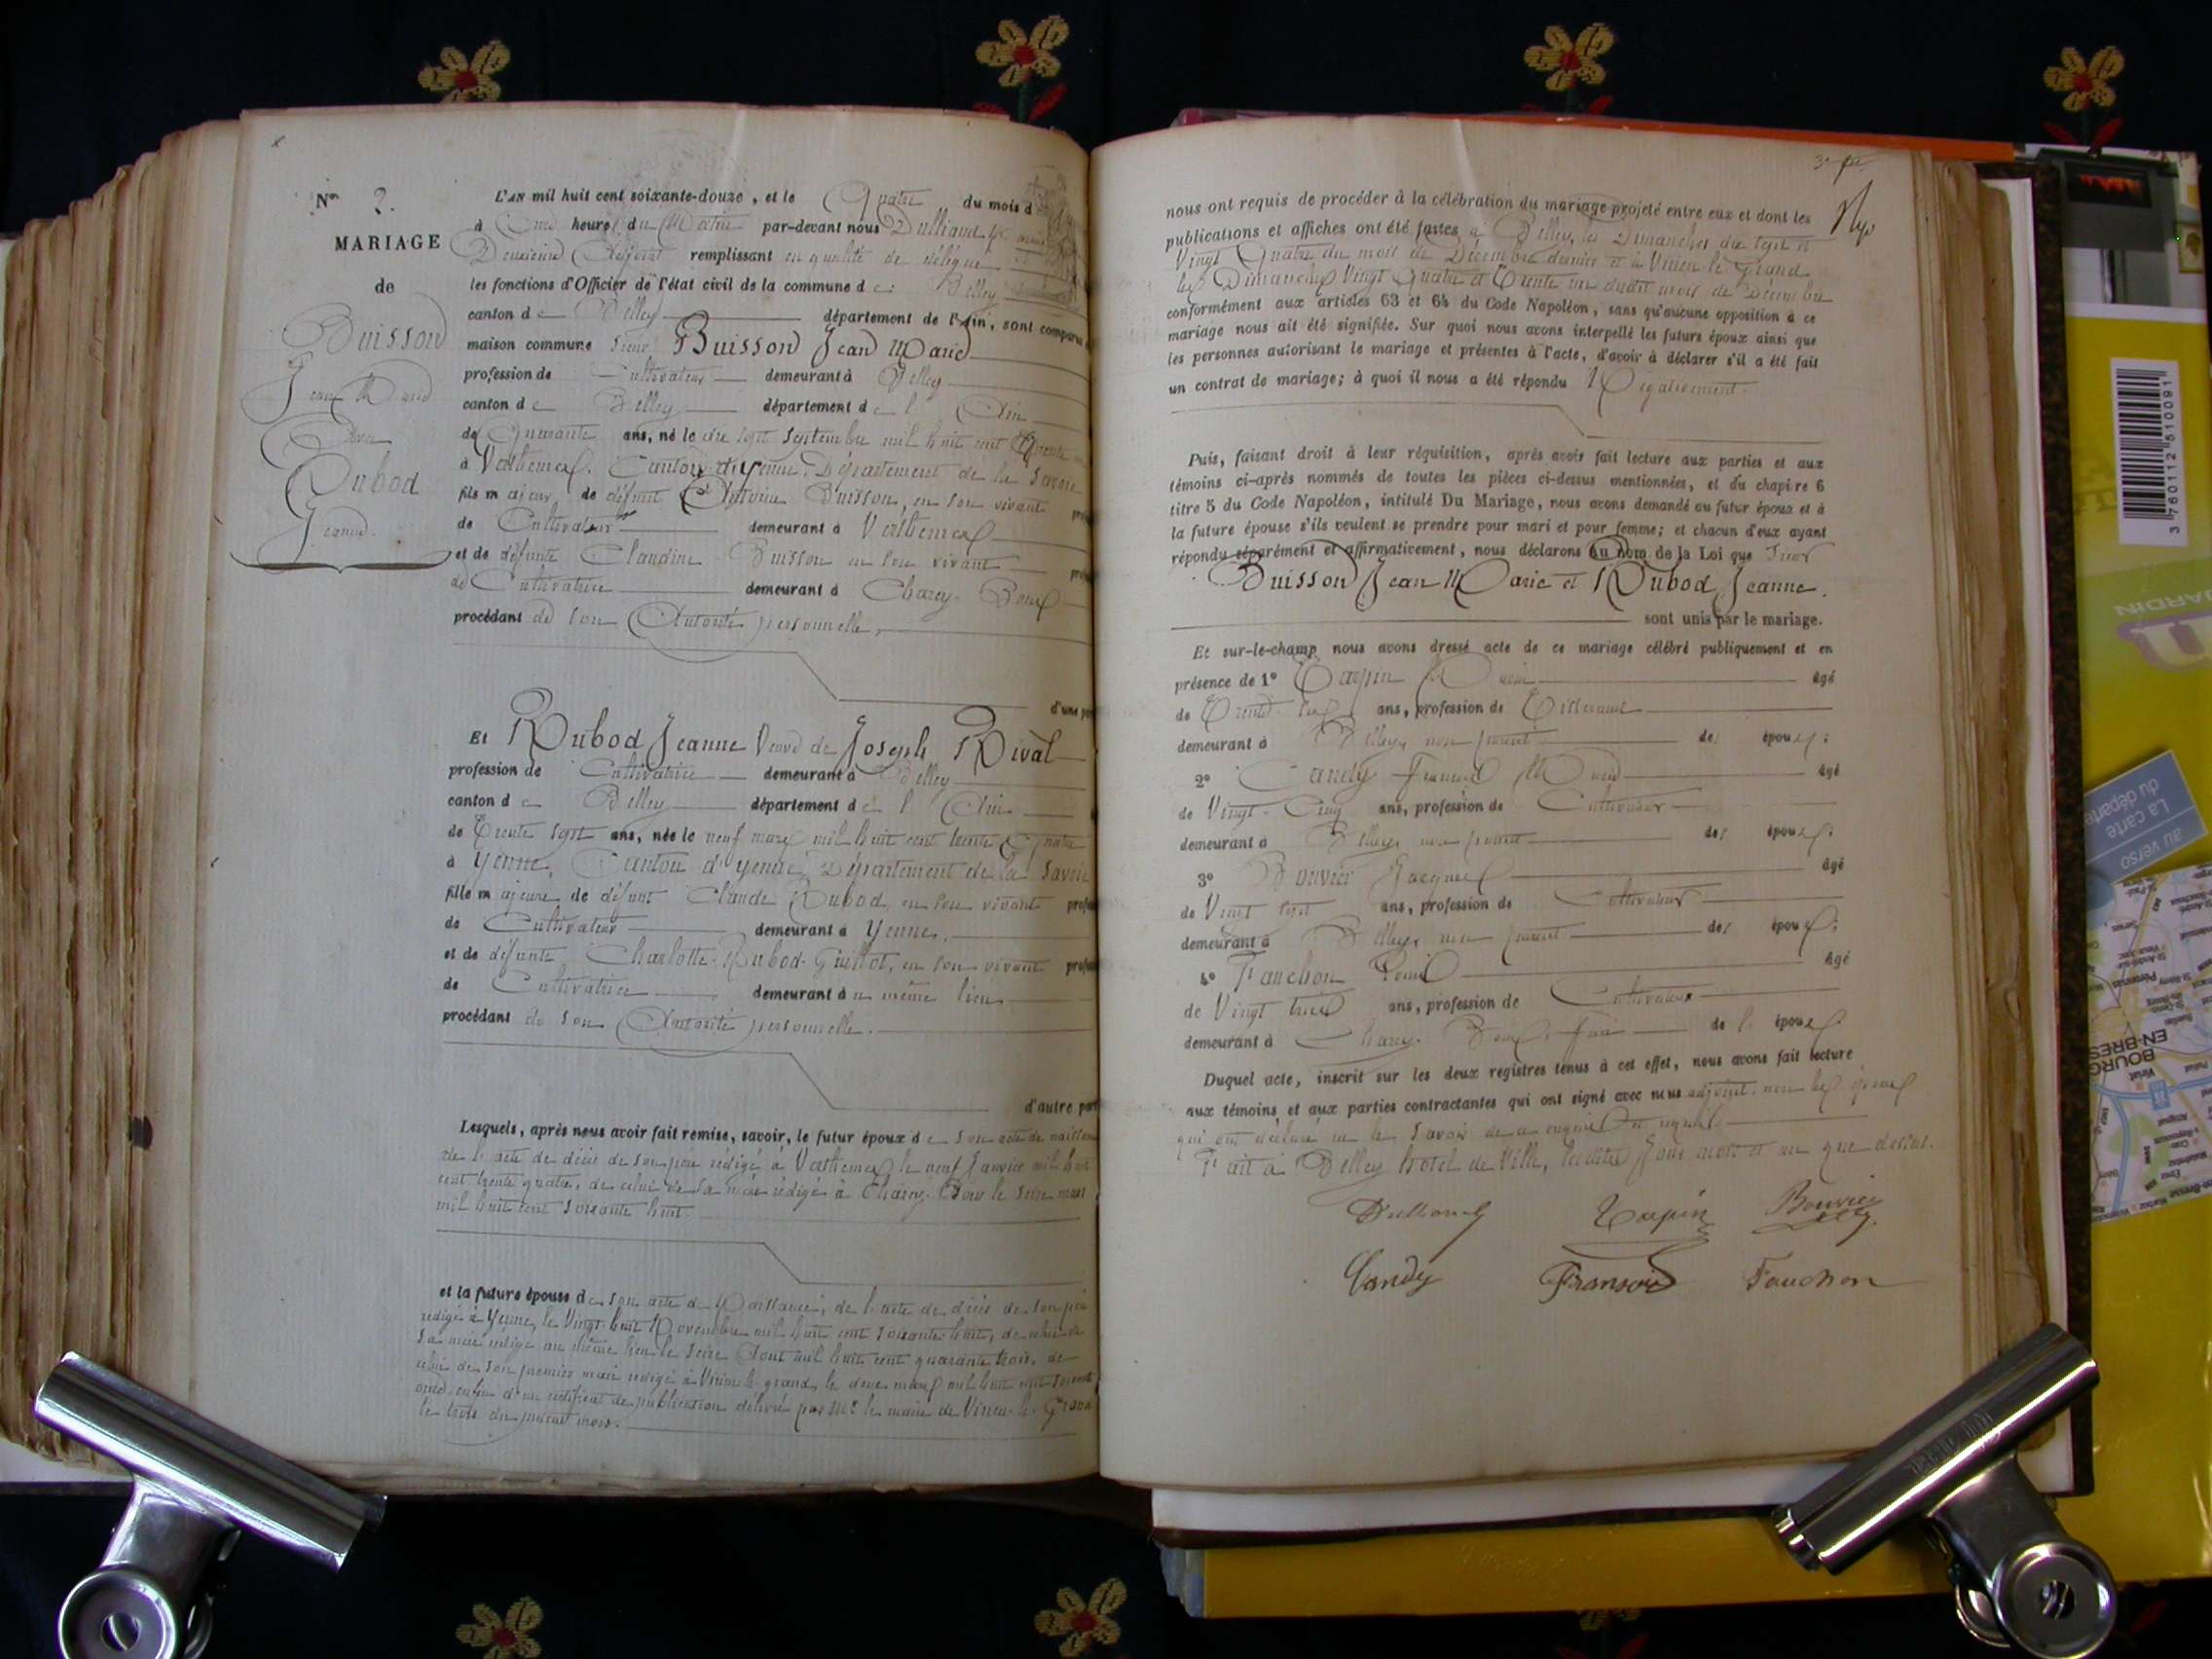 Nº 2.
MARIAGE
de
Buisson
Jean Marie
Avec
Rubod
Jeanne.
L'AN mil huit cent soixante-douze, et le Quatre du mois d
à heure du Matin par-devant nous Dulliand
Deuxième Adjoint remplissant en qualité de délégué
les fonctions d'Officier de l'état civil de la commune de Belley
canton de Belley département de l'Ain, sont comparus
maison commune Sieur Buisson Jean Marie
profession de Cultivateur demeurant à Belley
canton de Belley département de l'Ain
de Quarante ans, né le dix sept septembre mil huit cent trente un
à Verthemex, Canton d'Yenne, Département de la Savoie
fils majeur, de défunt Antoine Buisson, en son vivant
de Cultivateur demeurant à Verthemex
et de défunte Claudine Buisson en son vivant
de Cultivatrice demeurant à Charey-Boux
procédant de son Autorité personnelle,
d'une par
Et Rubod Jeanne Veuve de Joseph Rival
profession de Cultivatrice demeurant à Belley
canton de Belley département de l'Ain
de Trente sept ans, née le neuf mars mil huit cent trente Quatre
à Yenne, Canton d'Yenne, Département de la Savoie
fille majeure de défunt Claude Rubod, en son vivant profes
de Cultivateur demeurant à Yenne,
et de défunte Charlotte Rubod-Guillot, en son vivant profes
de Cultivatrice demeurant au même lieu
procédant de son Autorité personnelle.
d'autre part
Lesquels, après nous avoir fait remise, savoir, le futur époux de son acte de naissance
de l'acte de décès de son père rédigé à Verthemex le neuf Janvier mil huit
cent trente quatre, de celui de sa mère rédigé à le seize mars
mil huit cent soixante huit.
et la future épouse de son acte de Naissance, de l'acte de décès de son père
rédigé à Yenne, le Vingt huit Novembre mil huit cent soixante huit, de celui de
sa mère rédigé au même lieu le seize Aout mil huit cent quarante trois, de
celui de son premier mari rédigé à Virieu-le-grand, le douze mars mil huit cent soixante
onze, enfin d'un certificat de publication délivré par Mr le maire de Virieu-le-Grand
le trois du présent mois.
3e
nous ont requis de procéder à la célébration du mariage projeté entre eux et dont les
publications et affiches ont été faites à Belley, les Dimanches dix sept et
Vingt Quatre du mois de Décembre dernier et à Virieu-le-Grand
les Dimanches Vingt Quatre et Trente un dudit mois de Décembre
conformément aux articles 63 et 64 du Code Napoléon, sans qu'aucune opposition à ce
mariage nous ait été signifiée. Sur quoi nous avons interpellé les futurs époux ainsi que
les personnes autorisant le mariage et présentes à l'acte, d'avoir à déclarer s'il a été fait
un contrat de mariage; à quoi il nous a été répondu Négativement.
Puis, faisant droit à leur réquisition, après avoir fait lecture aux parties et aux
témoins ci-après nommés de toutes les pièces ci-dessus mentionnées, et du chapitre 6
titre 5 du Code Napoléon, intitulé Du Mariage, nous avons demandé au futur époux et à
la future épouse s'ils veulent se prendre pour mari et pour femme; et chacun d'eux ayant
répondu séparément et affirmativement, nous déclarons au nom de la Loi que Sieur
Buisson Jean Marie et Rubod Jeanne.
sont unis par le mariage.
Et sur-le-champ nous avons dressé acte de ce mariage célébré publiquement et en
présence de 1º Tarpin âgé
de Trente ans, profession de Tisserand
demeurant à Belley, non parent des époux;
2º Candy François Marie âgé
de Vingt-Cinq ans, profession de Cultivateur
demeurant à Belley, non parent des époux;
3º Bouvier Jacques âgé
de Vingt sept ans, profession de Cultivateur
demeurant à Belley, non parent des époux;
4º Fanchon Louis âgé
de Vingt trois ans, profession de Cultivateur
demeurant à de l'époux.
Duquel acte, inscrit sur les deux registres tenus à cet effet, nous avons fait lecture
aux témoins et aux parties contractantes qui ont signé avec nous adjoint, non les époux
qui ont déclaré ne le savoir de ce enquis et requis.
Fait à Belley hôtel de Ville, lesdits Jour mois et an que dessus.
Dulliand Tarpin Bouvier
Candy François Fanchon
3 760112 510091
JARDIN
La carte
du départe
au verso
BOURG
EN-BRES